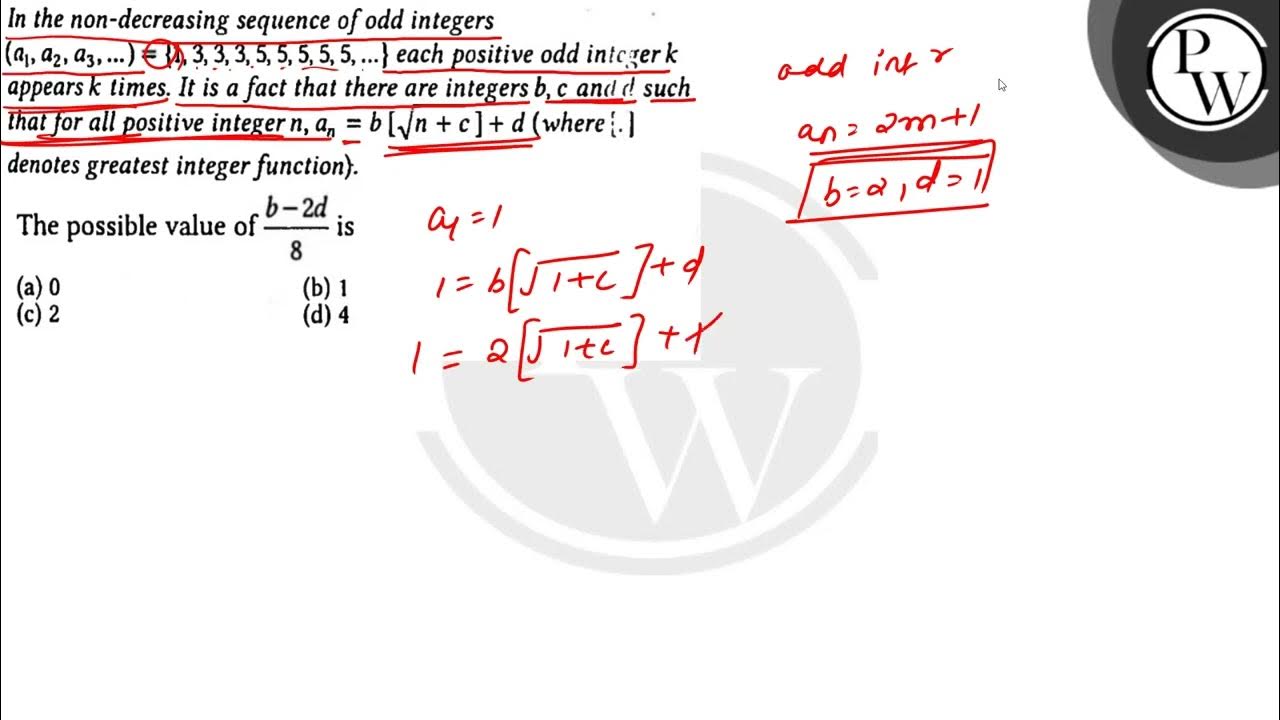 In the non-decreasing sequence of odd integers
(a₁, a₂, a₃, ...) = {1, 3, 3, 3, 5, 5, 5, 5, 5, ...} each positive odd integer k
appears k times. It is a fact that there are integers b, c and d such
that for all positive integer n, aₙ = b [√n + c] + d (where [.]
denotes greatest integer function).
The possible value of (b − 2d)/8 is
(a) 0 (b) 1
(c) 2 (d) 4
a₁ = 1
1 = b[√(1+c)] + d
1 = 2[√(1+c)] + 1
odd int r
aₙ = 2m+1
b=2, d=1
P
W
W